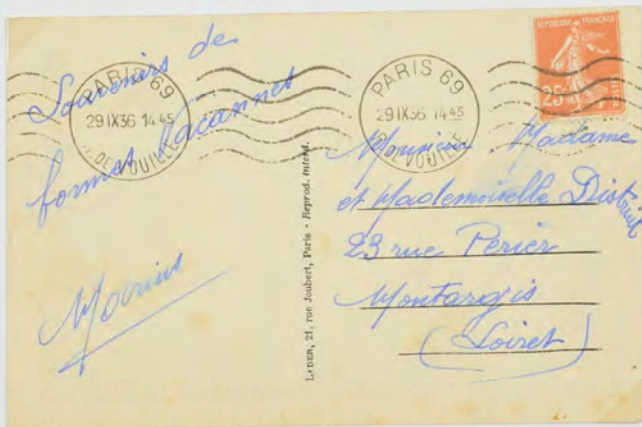 Souvenirs de
bonnes Vacannet
PARIS 69
29 IX 36 14 45
R. DE VOUILLÉ
PARIS 69
29 IX 36 14 45
R. DE VOUILLÉ
REPUBLIQUE FRANÇAISE
25c
POSTES
LADER, 21, rue Joubert, Paris - Reprod. interd.
Monsieur Madame
et Mademoiselle
23 rue Périer
Montargis
(Loiret)